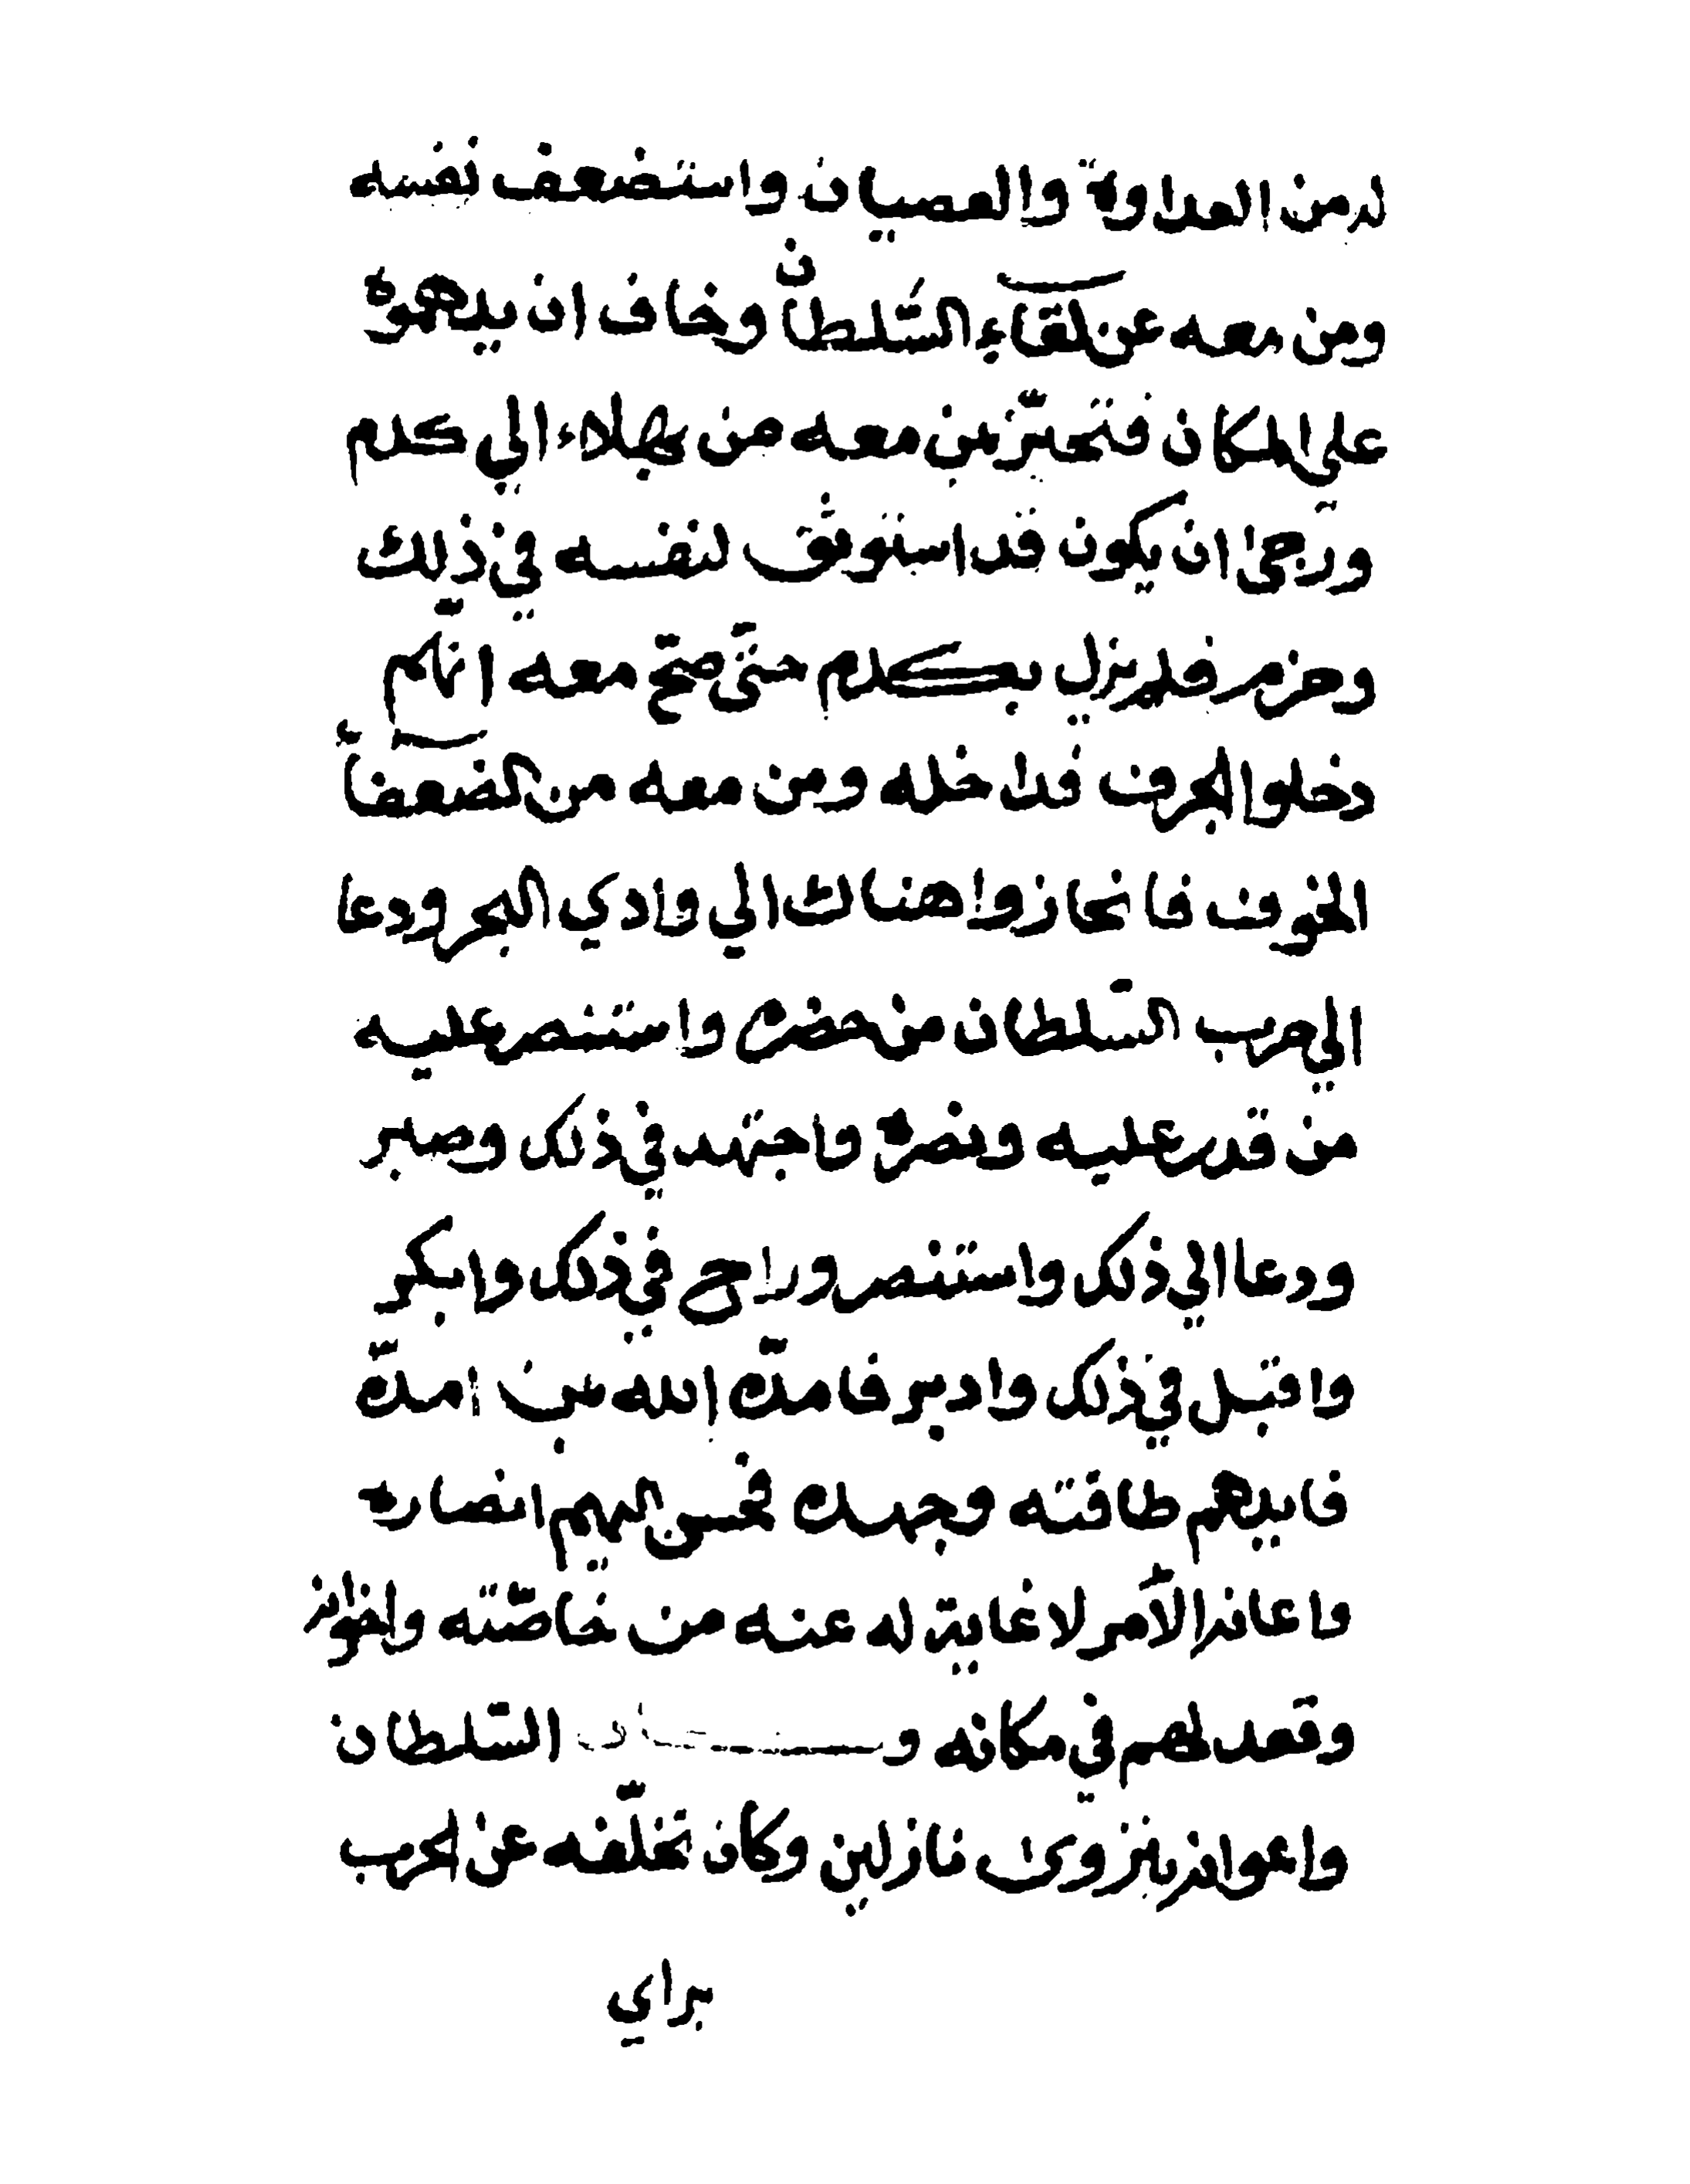 له من العداوة والعصيان واستضعف نفسه
ومن معه عن لقاء السّلطان وخاف ان يدهموه
على المكان فتحيّز بمن معه من بهلاء الي كدم
ورجىٰ ان يكون قد استوثق لنفسه في ذلك
وحزم فلم يزل بكدم حتّى صحّ معه انّهم
دخلوا الجوف فداخله ومن معه من الضعف
الخوف فانحازوا هناك الي وادي البحر ودعا
الي حرب السّلطان من حضره واستنصر عليه
من قدر عليه ونصره واجتهد في ذلك وصبر
ودعا الي ذلك واستنصر وراح في ذلك وابكر
واقبل في ذلك وادبر فامدّه الله بمن امدّه
فايدهم طاقته وجهده فحسن اليهم انصاره
واعانه الأمر لا غاية له عنه من خاصّته واخوانه
وقعد لهم في مكانه و السّلطان
واعوانه بنزوى نازلين وكان تخلّفه عن الحرب
براي